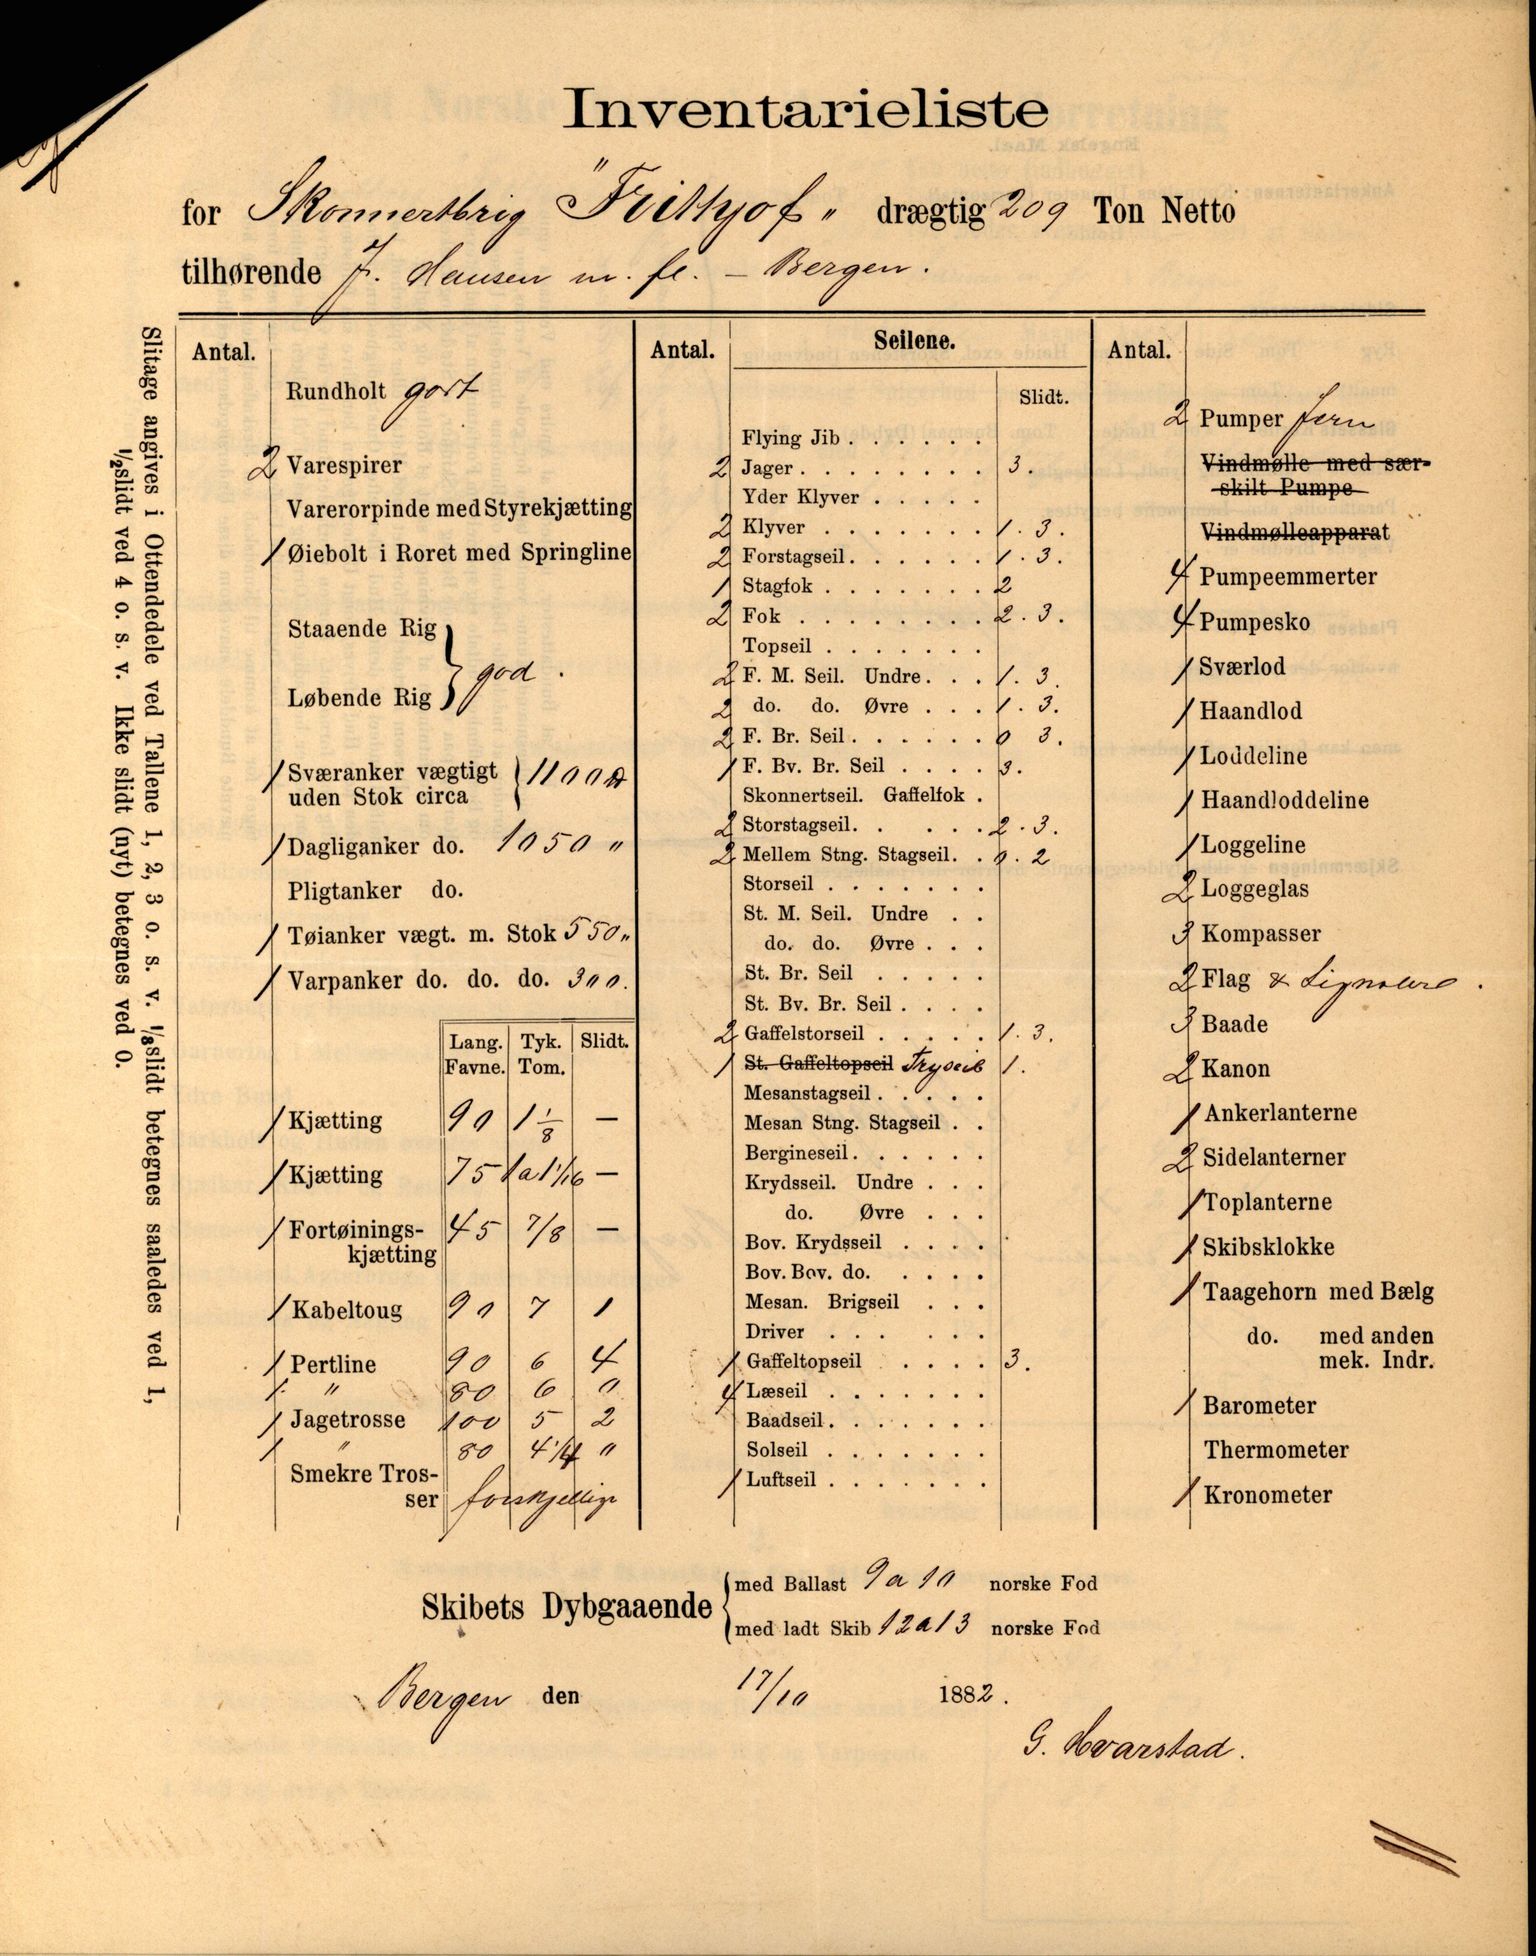 Inventarieliste
for Skonnertbrig "Frithjof" drægtig 209 Ton Netto
tilhørende J. Hansen m. fl. - Bergen.
Slitage angives i Ottendedele ved Tallene 1, 2, 3 o. s. v. 1/8 slidt betegnes saaledes ved 1,
1/2 slidt ved 4 o. s. v. Ikke slidt (nyt) betegnes ved 0.
Antal.
Rundholt godt
2 Varespirer
Varerorpinde med Styrekjætting
1 Øiebolt i Roret med Springline
Staaende Rig
Løbende Rig } god.
1 Sværanker vægtigt
uden Stok circa } 1100 ℔
1 Dagliganker do. 1050 "
Pligtanker do.
1 Tøianker vægt. m. Stok 550 "
1 Varpanker do. do. do. 300.
Lang. Tyk. Slidt.
Favne. Tom.
1 Kjætting 90 1 1/8 —
1 Kjætting 75 1 a 1 1/16 —
1 Fortøinings-
kjætting 45 7/8 —
1 Kabeltoug 90 7 1
1 Pertline 90 6 4
1. " 80 6 0
1 Jagetrosse 100 5 2
1 " 80 4 1/4 0
Smekre Tros-
ser forskjellige
Antal. Seilene.
Slidt.
Flying Jib . . . . . .
2 Jager . . . . . . . . 3.
Yder Klyver . . . . .
2 Klyver . . . . . . . 1. 3.
2 Forstagseil . . . . . . 1. 3.
1 Stagfok . . . . . . . 2
2 Fok . . . . . . . . 2. 3.
Topseil . . . . . . .
2 F. M. Seil. Undre . . . 1. 3.
2 do. do. Øvre . . . 1. 3.
2 F. Br. Seil . . . . . . 0 3.
1 F. Bv. Br. Seil . . . . 3.
Skonnertseil. Gaffelfok .
2 Storstagseil . . . . . 2. 3.
2 Mellem Stng. Stagseil . . 0. 2
Storseil . . . . . . .
St. M. Seil. Undre . .
do. do. Øvre . . .
St. Br. Seil . . . . .
St. Bv. Br. Seil . . . .
2 Gaffelstorseil . . . . . 1. 3.
1 St. Gaffeltopseil Tryseil 1.
Mesanstagseil . . . . .
Mesan Stng. Stagseil . .
Bergineseil . . . . . .
Krydsseil. Undre . . .
do. Øvre . . .
Bov. Krydsseil . . . .
Bov. Bov. do. . . . .
Mesan. Brigseil . . .
Driver . . . . . .
1 Gaffeltopseil . . . . 3.
4 Læseil . . . . . . .
Baadseil . . . . . . .
Solseil . . . . . . .
1 Luftseil . . . . . . .
Antal.
2 Pumper Jern
Vindmølle med sær-
skilt Pumpe
Vindmølleapparat
4 Pumpeemmerter
4 Pumpesko
1 Sværlod
1 Haandlod
1 Loddeline
1 Haandloddeline
1 Loggeline
2 Loggeglas
3 Kompasser
2 Flag & Signalere.
3 Baade
2 Kanon
1 Ankerlanterne
2 Sidelanterner
1 Toplanterne
1 Skibsklokke
1 Taagehorn med Bælg
do. med anden
mek. Indr.
1 Barometer
Thermometer
1 Kronometer
Skibets Dybgaaende { med Ballast 9 a 10 norske Fod
med ladt Skib 12 a 13 norske Fod
Bergen den 17/10 1882.
G. Hvarstad.